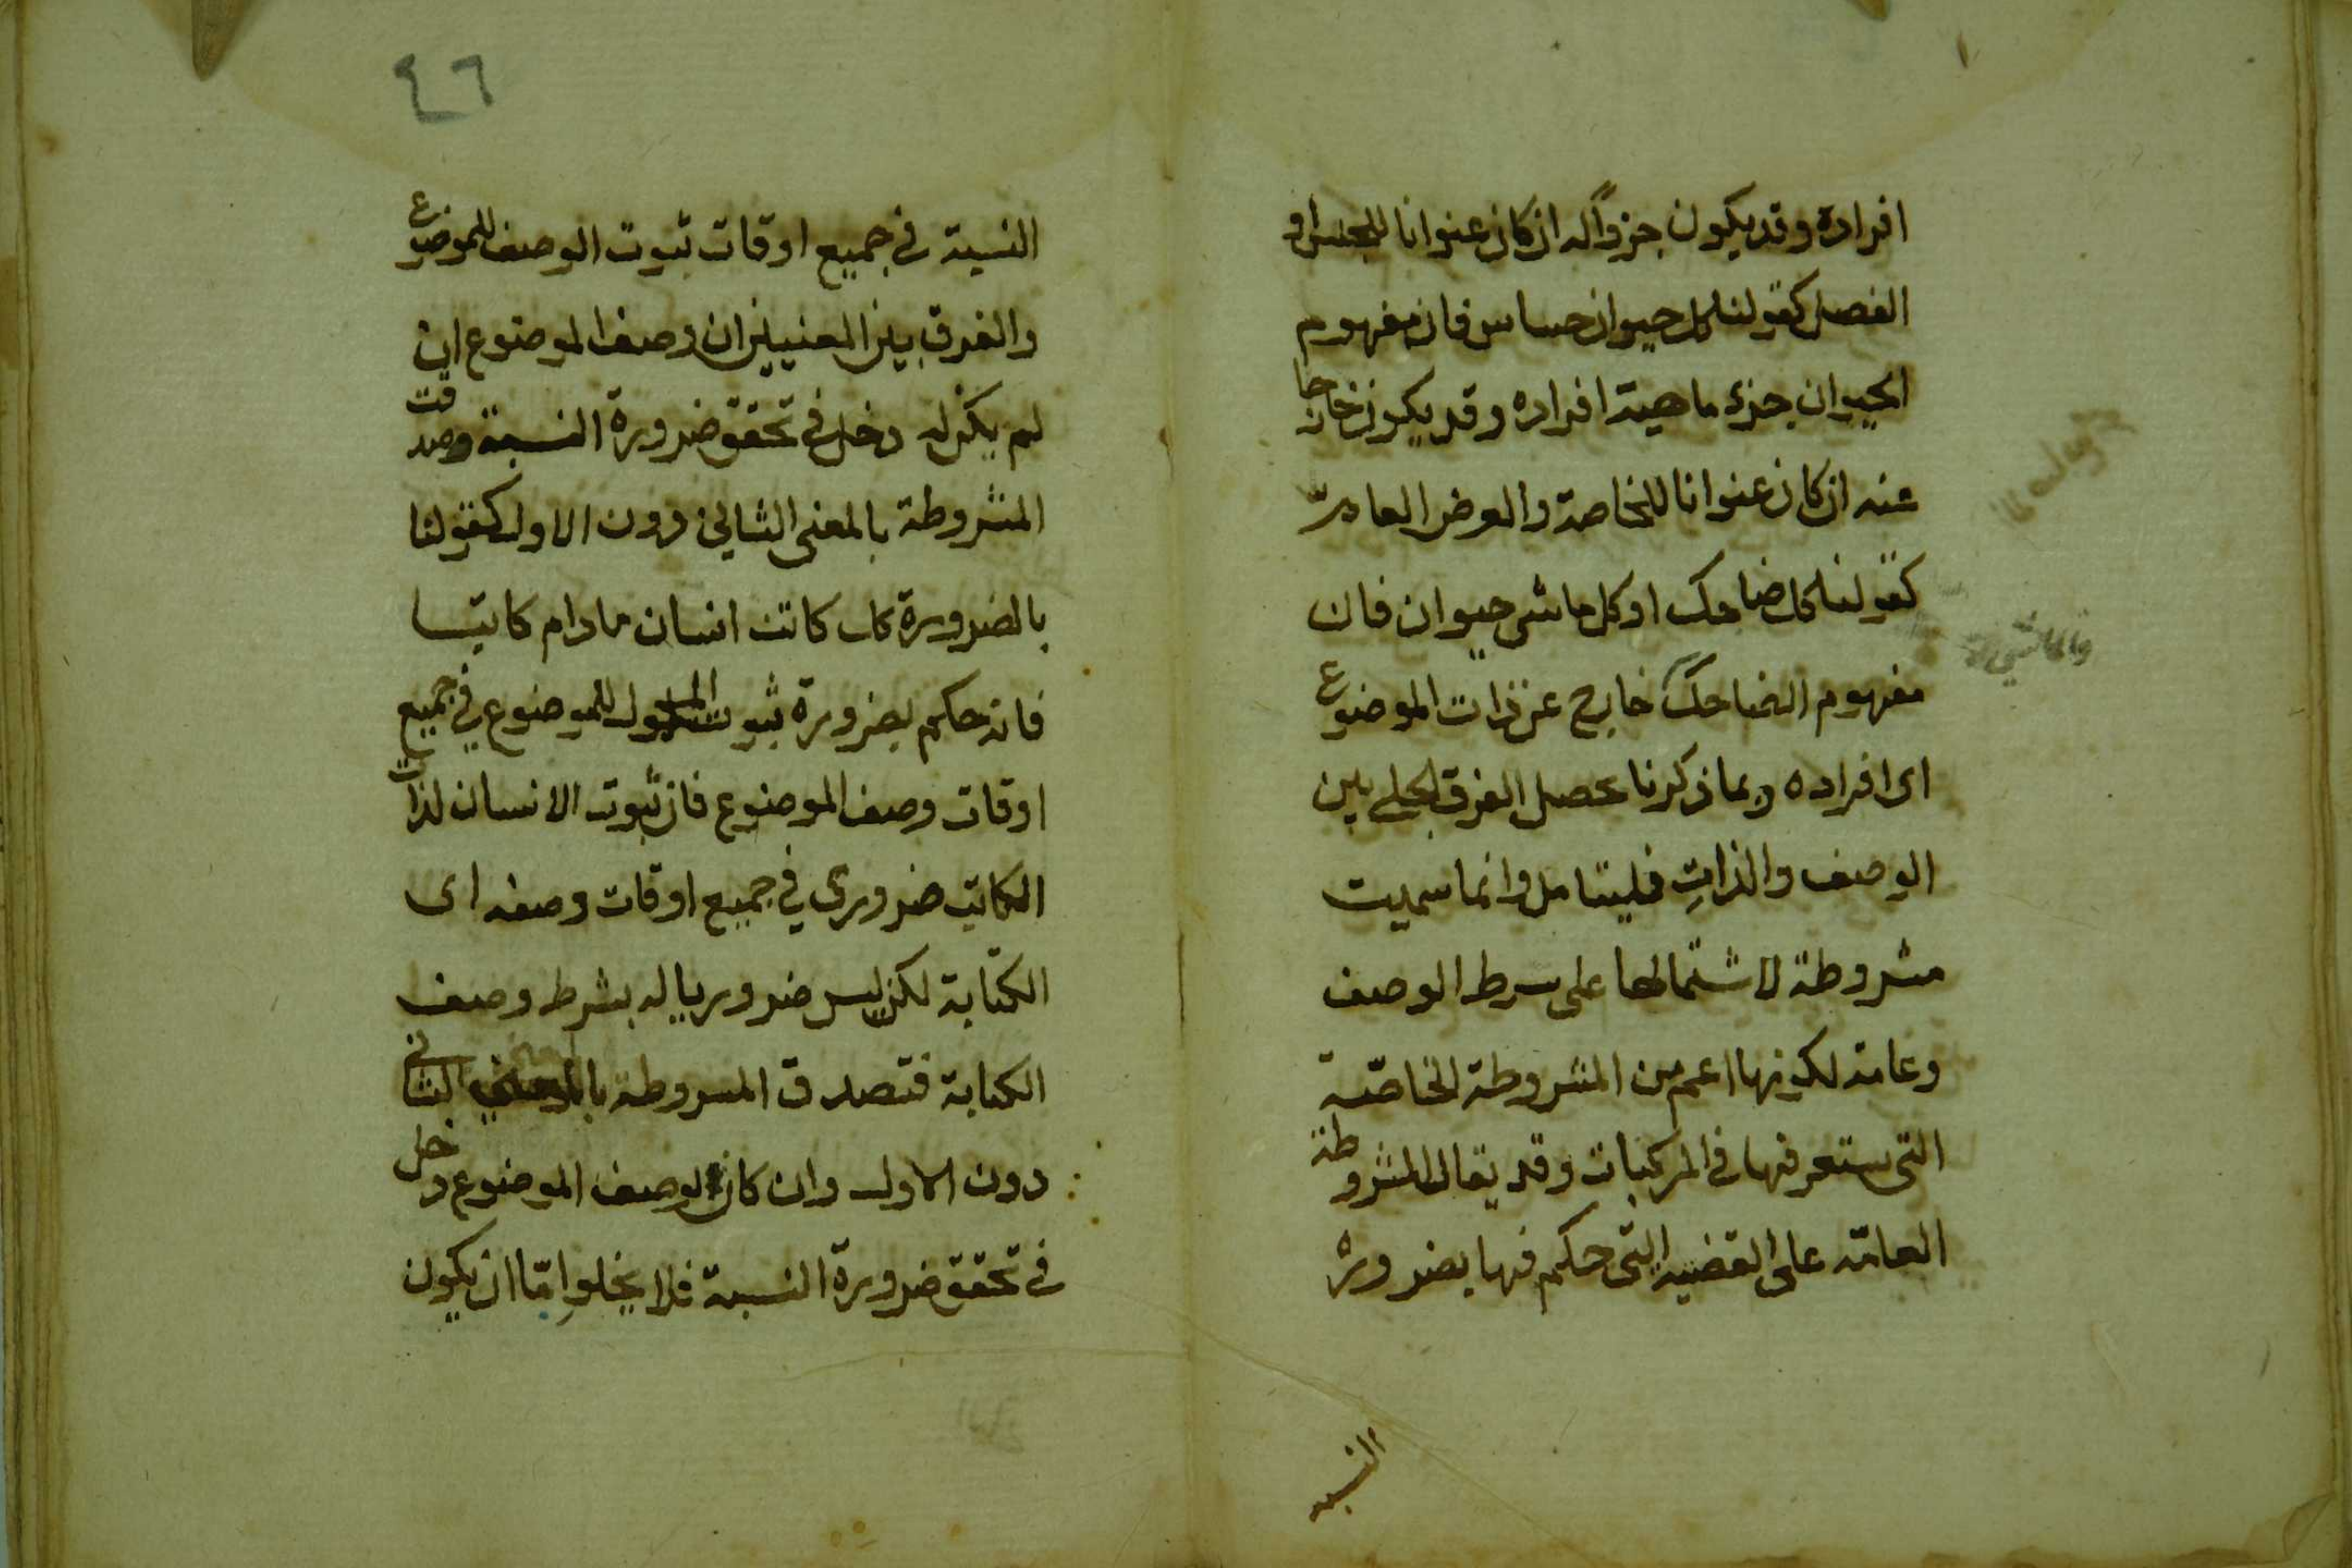 افراده وقد يكون جزواً له ان كان عنوانا للجنس او
الفصل كقولنا كل حيوان حساس فان مفهوم
الحيوان جزء ماهية افراده وقد يكون خارجا
عنه ان كان عنوانا للخاصة والعرض العام
كقولنا كل ضاحك او كل ماشى حيوان فان
مفهوم الضاحك خارج عن ذات الموضوع
اى افراده وبما ذكرنا يحصل الفرق الجلى بين
الوصف والذات فليتامل وانما سميت
مشروطة لاشتمالها على شرط الوصف
وعامة لكونها اعم من المشروطة الخاصّة
التى ستعرفها فى المركبات وقد يقال المشروطة
العامّة على القضية التى حكم فيها بضرورة
النسبة
والماشي
٤٦
النسبة في جميع اوقات ثبوت الوصف للموضوع
والفرق بين المعنيين ان وصف الموضوع ان
لم يكن له دخل في تحقق ضرورة النسبة وصدقت
المشروطة بالمعنى الثاني دون الاول كقولنا
بالضرورة كل كاتب انسان مادام كاتبا
فانه حكم بضرورة ثبوت المحمول للموضوع في جميع
اوقات وصف الموضوع فان ثبوت الانسان لذات
الكاتب ضرورى في جميع اوقات وصفه اى
الكتابة لكن ليس ضروريا له بشرط وصف
الكتابة فتصدق المشروطة بالمعنى الثانى
دون الاول وان كان لوصف الموضوع دخل
في تحقق ضرورة النسبة فلا يخلوا امّا ان يكون